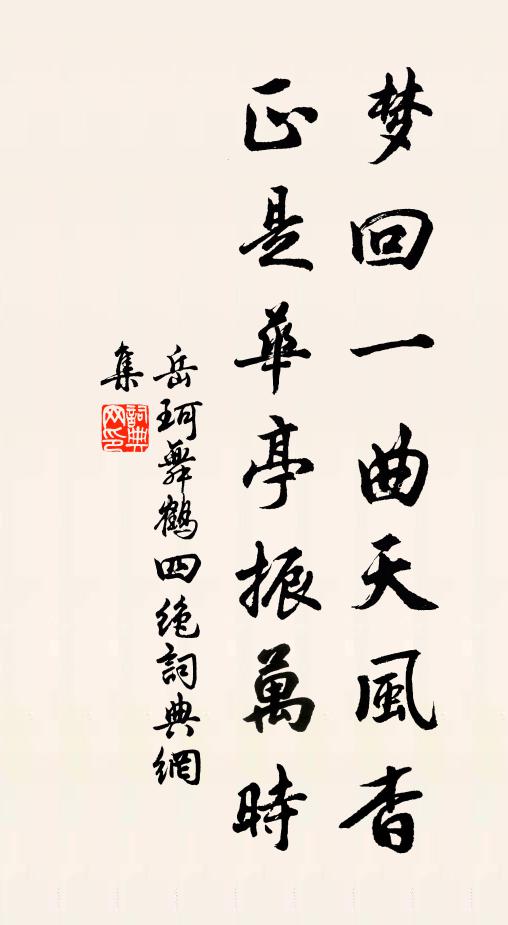 梦回一曲天風杳
正是華亭振萬時
岳珂舞鶴四絶詞典網
集
詞典
网印